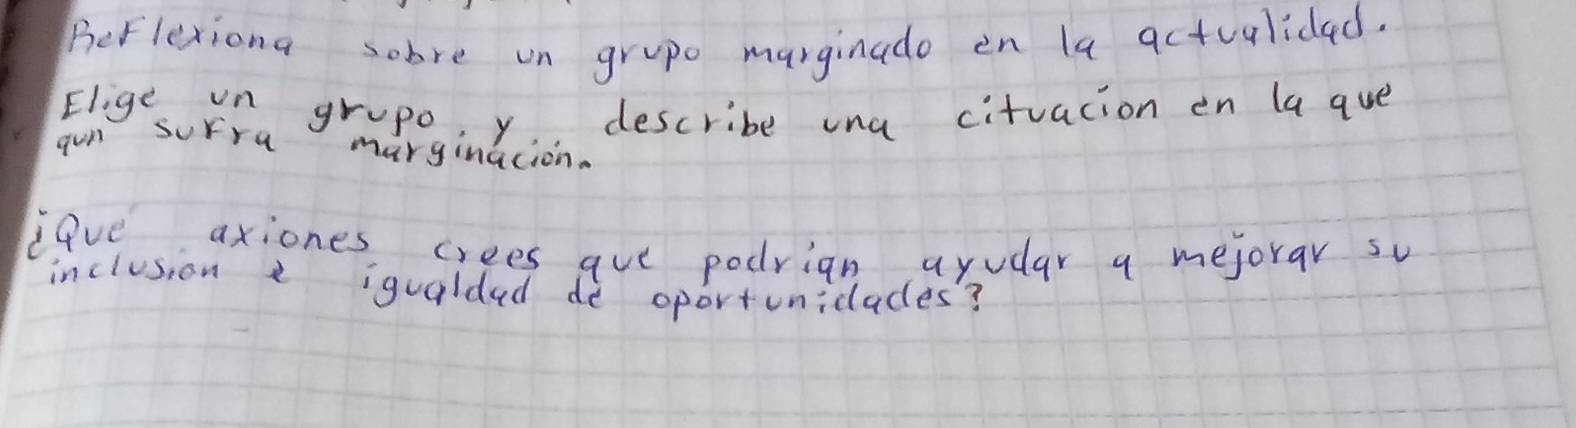 Reflexiona sobre un grupo marginado en la actualidad.
Elige un grupo y describe una cituacion en la que
aun sufra marginación.
¿Que axiones crees que podrian ayudar a mejorar su
inclusion e igualdad de oportunidades?